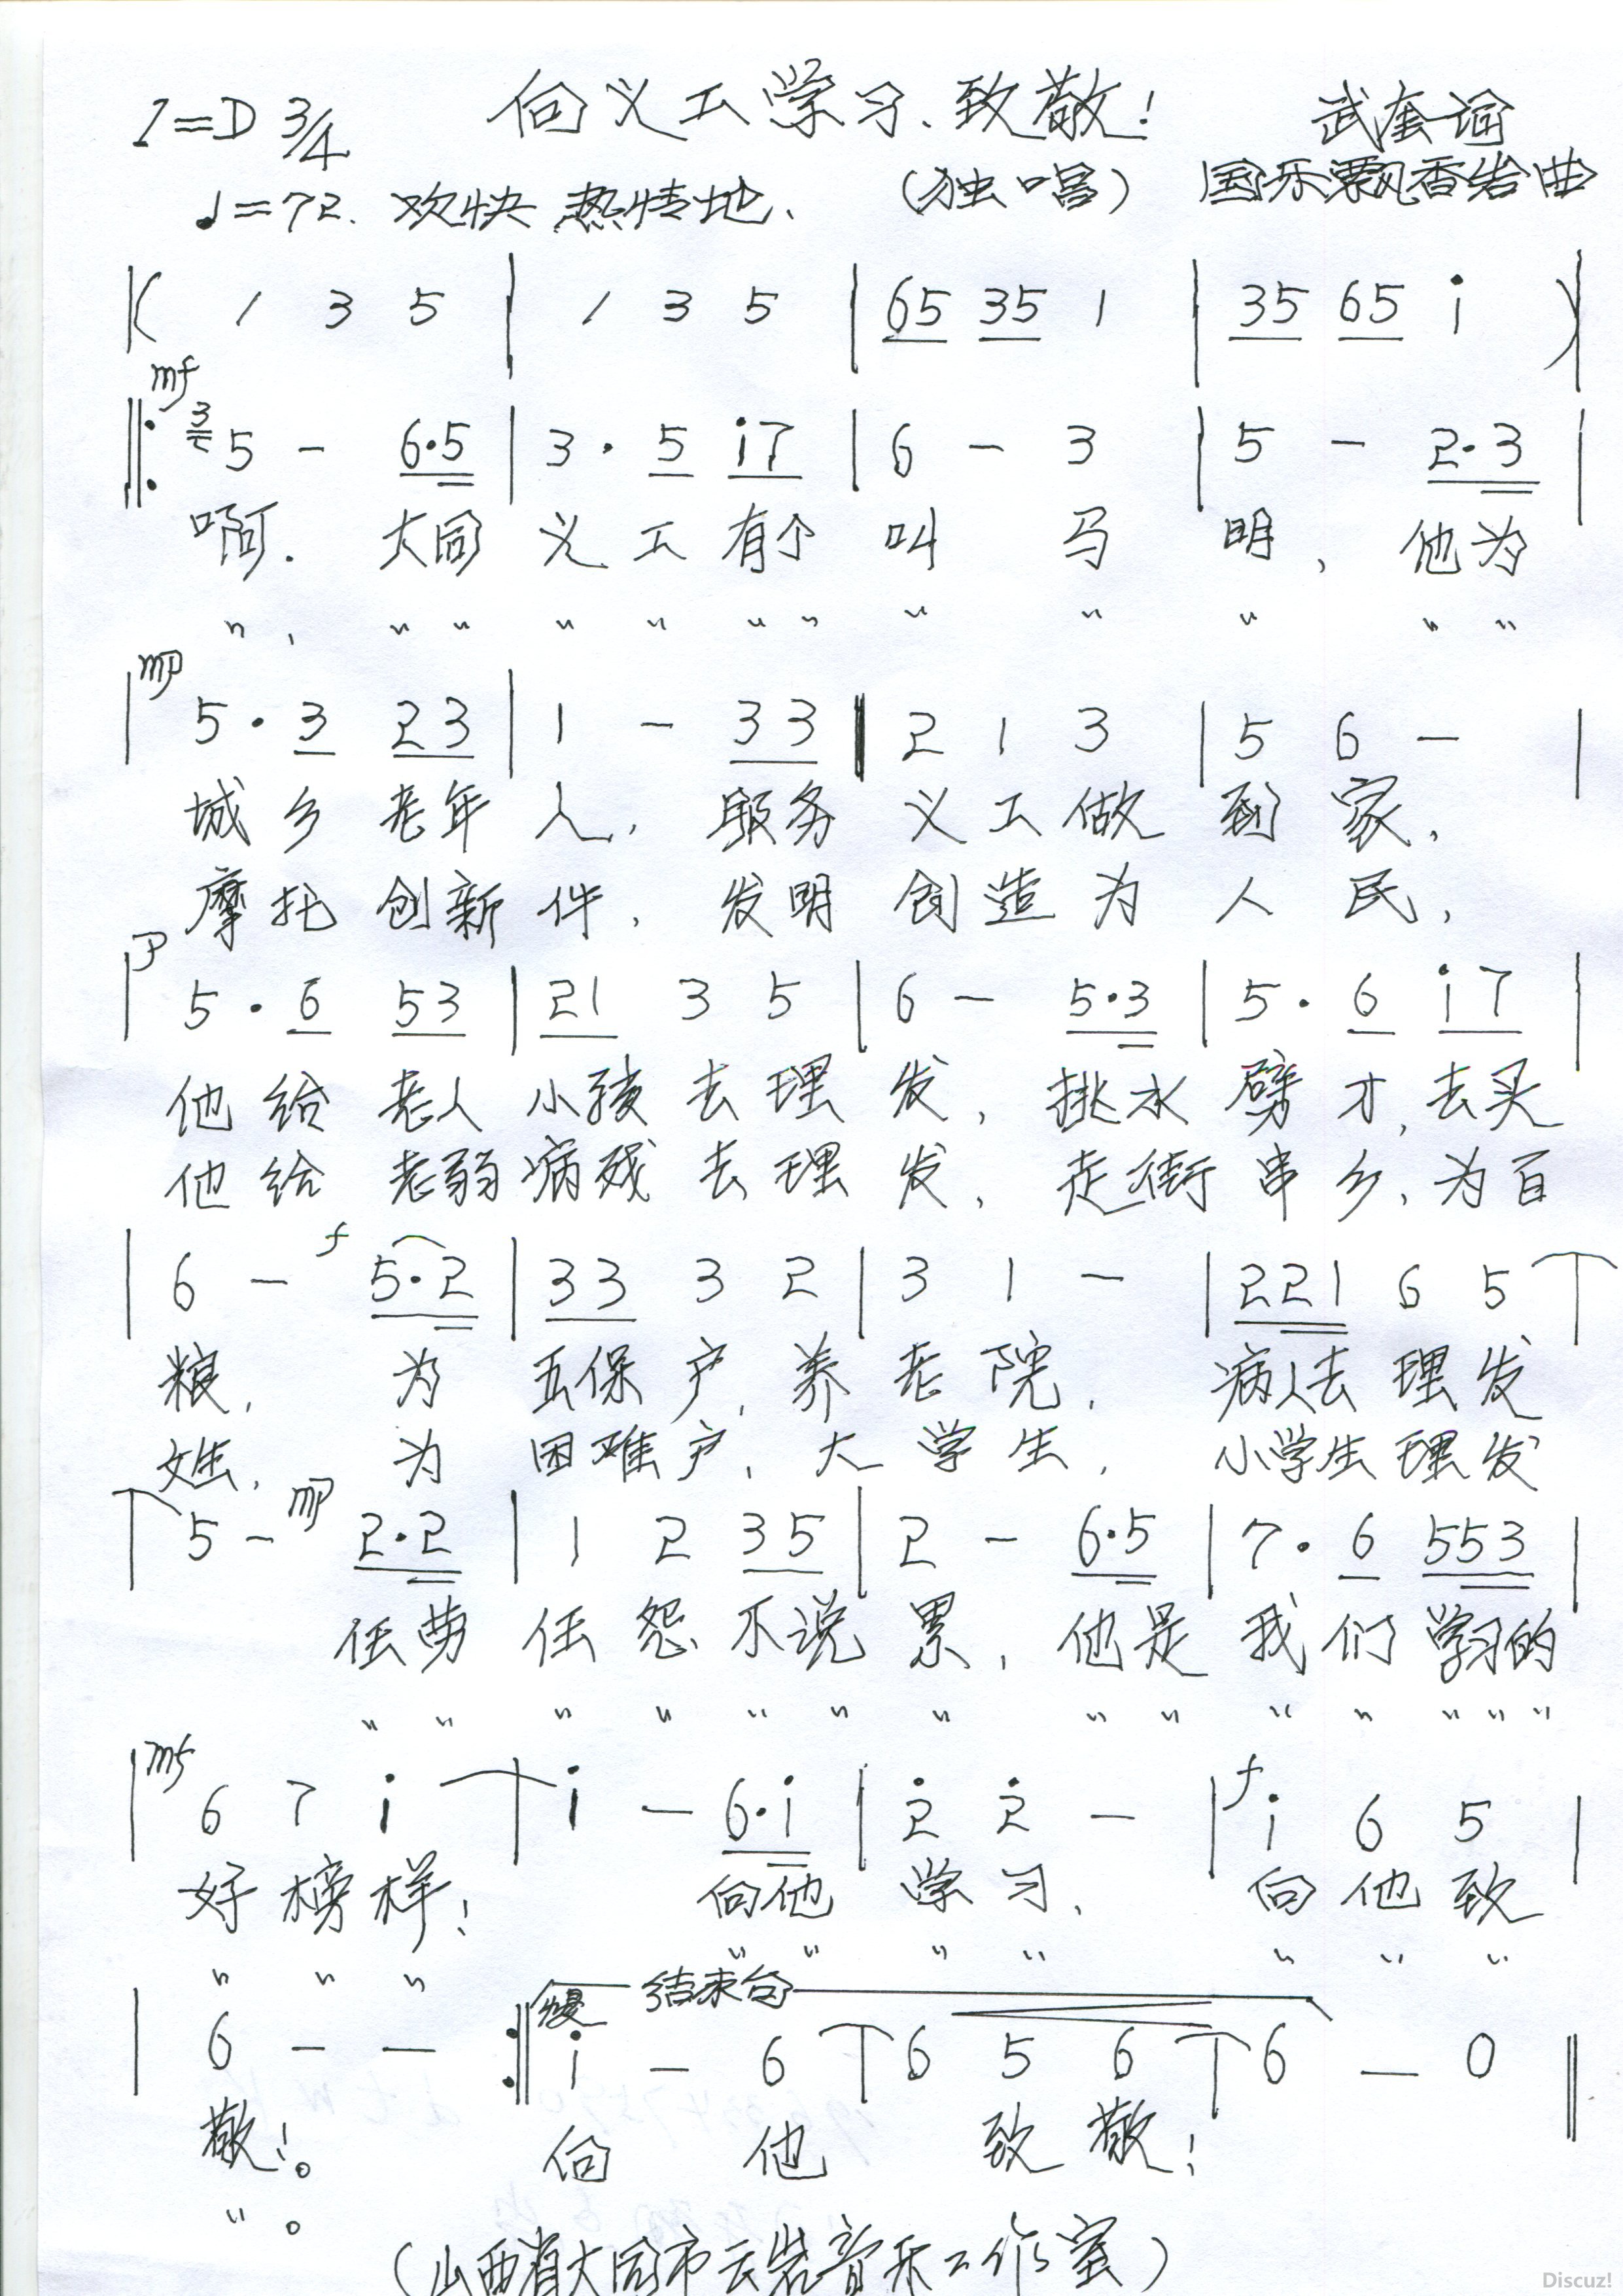 1=D 3/4 向义工学习、致敬! 武奎词
♩=72. 欢快 热情地、 (独唱) 国乐飘香岩曲
|( 1 3 5 | 1 3 5 | 65 35 1 | 35 65 i )|
mf
‖: 3 5 - 6·5 | 3 · 5 i7 | 6 - 3 | 5 - 2·3 |
啊. 大同 义 工 有个 叫 马 明、 他为
〃 、 〃 〃 〃 〃 〃 〃 〃 〃 〃 〃 〃
mp
| 5 · 3 23 | 1 - 33 | 2 1 3 | 5 6 - |
城 乡 老年 人, 服务 义 工 做 到 家,
摩 托 创新 件, 发明 创 造 为 人 民,
P
| 5 · 6 53 | 21 3 5 | 6 - 5·3 | 5 · 6 i7 |
他 给 老人 小孩 去 理 发, 挑水 劈 才,去买
他 给 老弱 病残 去 理 发, 走街 串 乡、为百
| 6 - f 5·2 | 33 3 2 | 3 1 - | 221 6 5 |
粮, 为 五保 户、养 老 院, 病人去 理 发
姓, 为 困难 户、大 学 生, 小学生 理 发
| 5 - mp 2·2 | 1 2 35 | 2 - 6·5 | 7 · 6 553 |
任劳 任 怨 不说 累, 他是 我 们 学习的
〃 〃 〃 〃 〃 〃 〃 〃 〃 〃 〃 〃 〃 〃
mf f
| 6 7 i | i - 6·i | 2 2 - | i 6 5 |
好 榜 样! 向他 学 习、 向 他 致
〃 〃 〃 〃 〃 〃 〃 〃 〃 〃
慢 结束句
| 6 - - :‖ i - 6 | 6 5 6 | 6 - 0 ‖
敬!。 向 他 致 敬!
〃 。
(山西省大同市云岩音乐工作室)
Discuz!